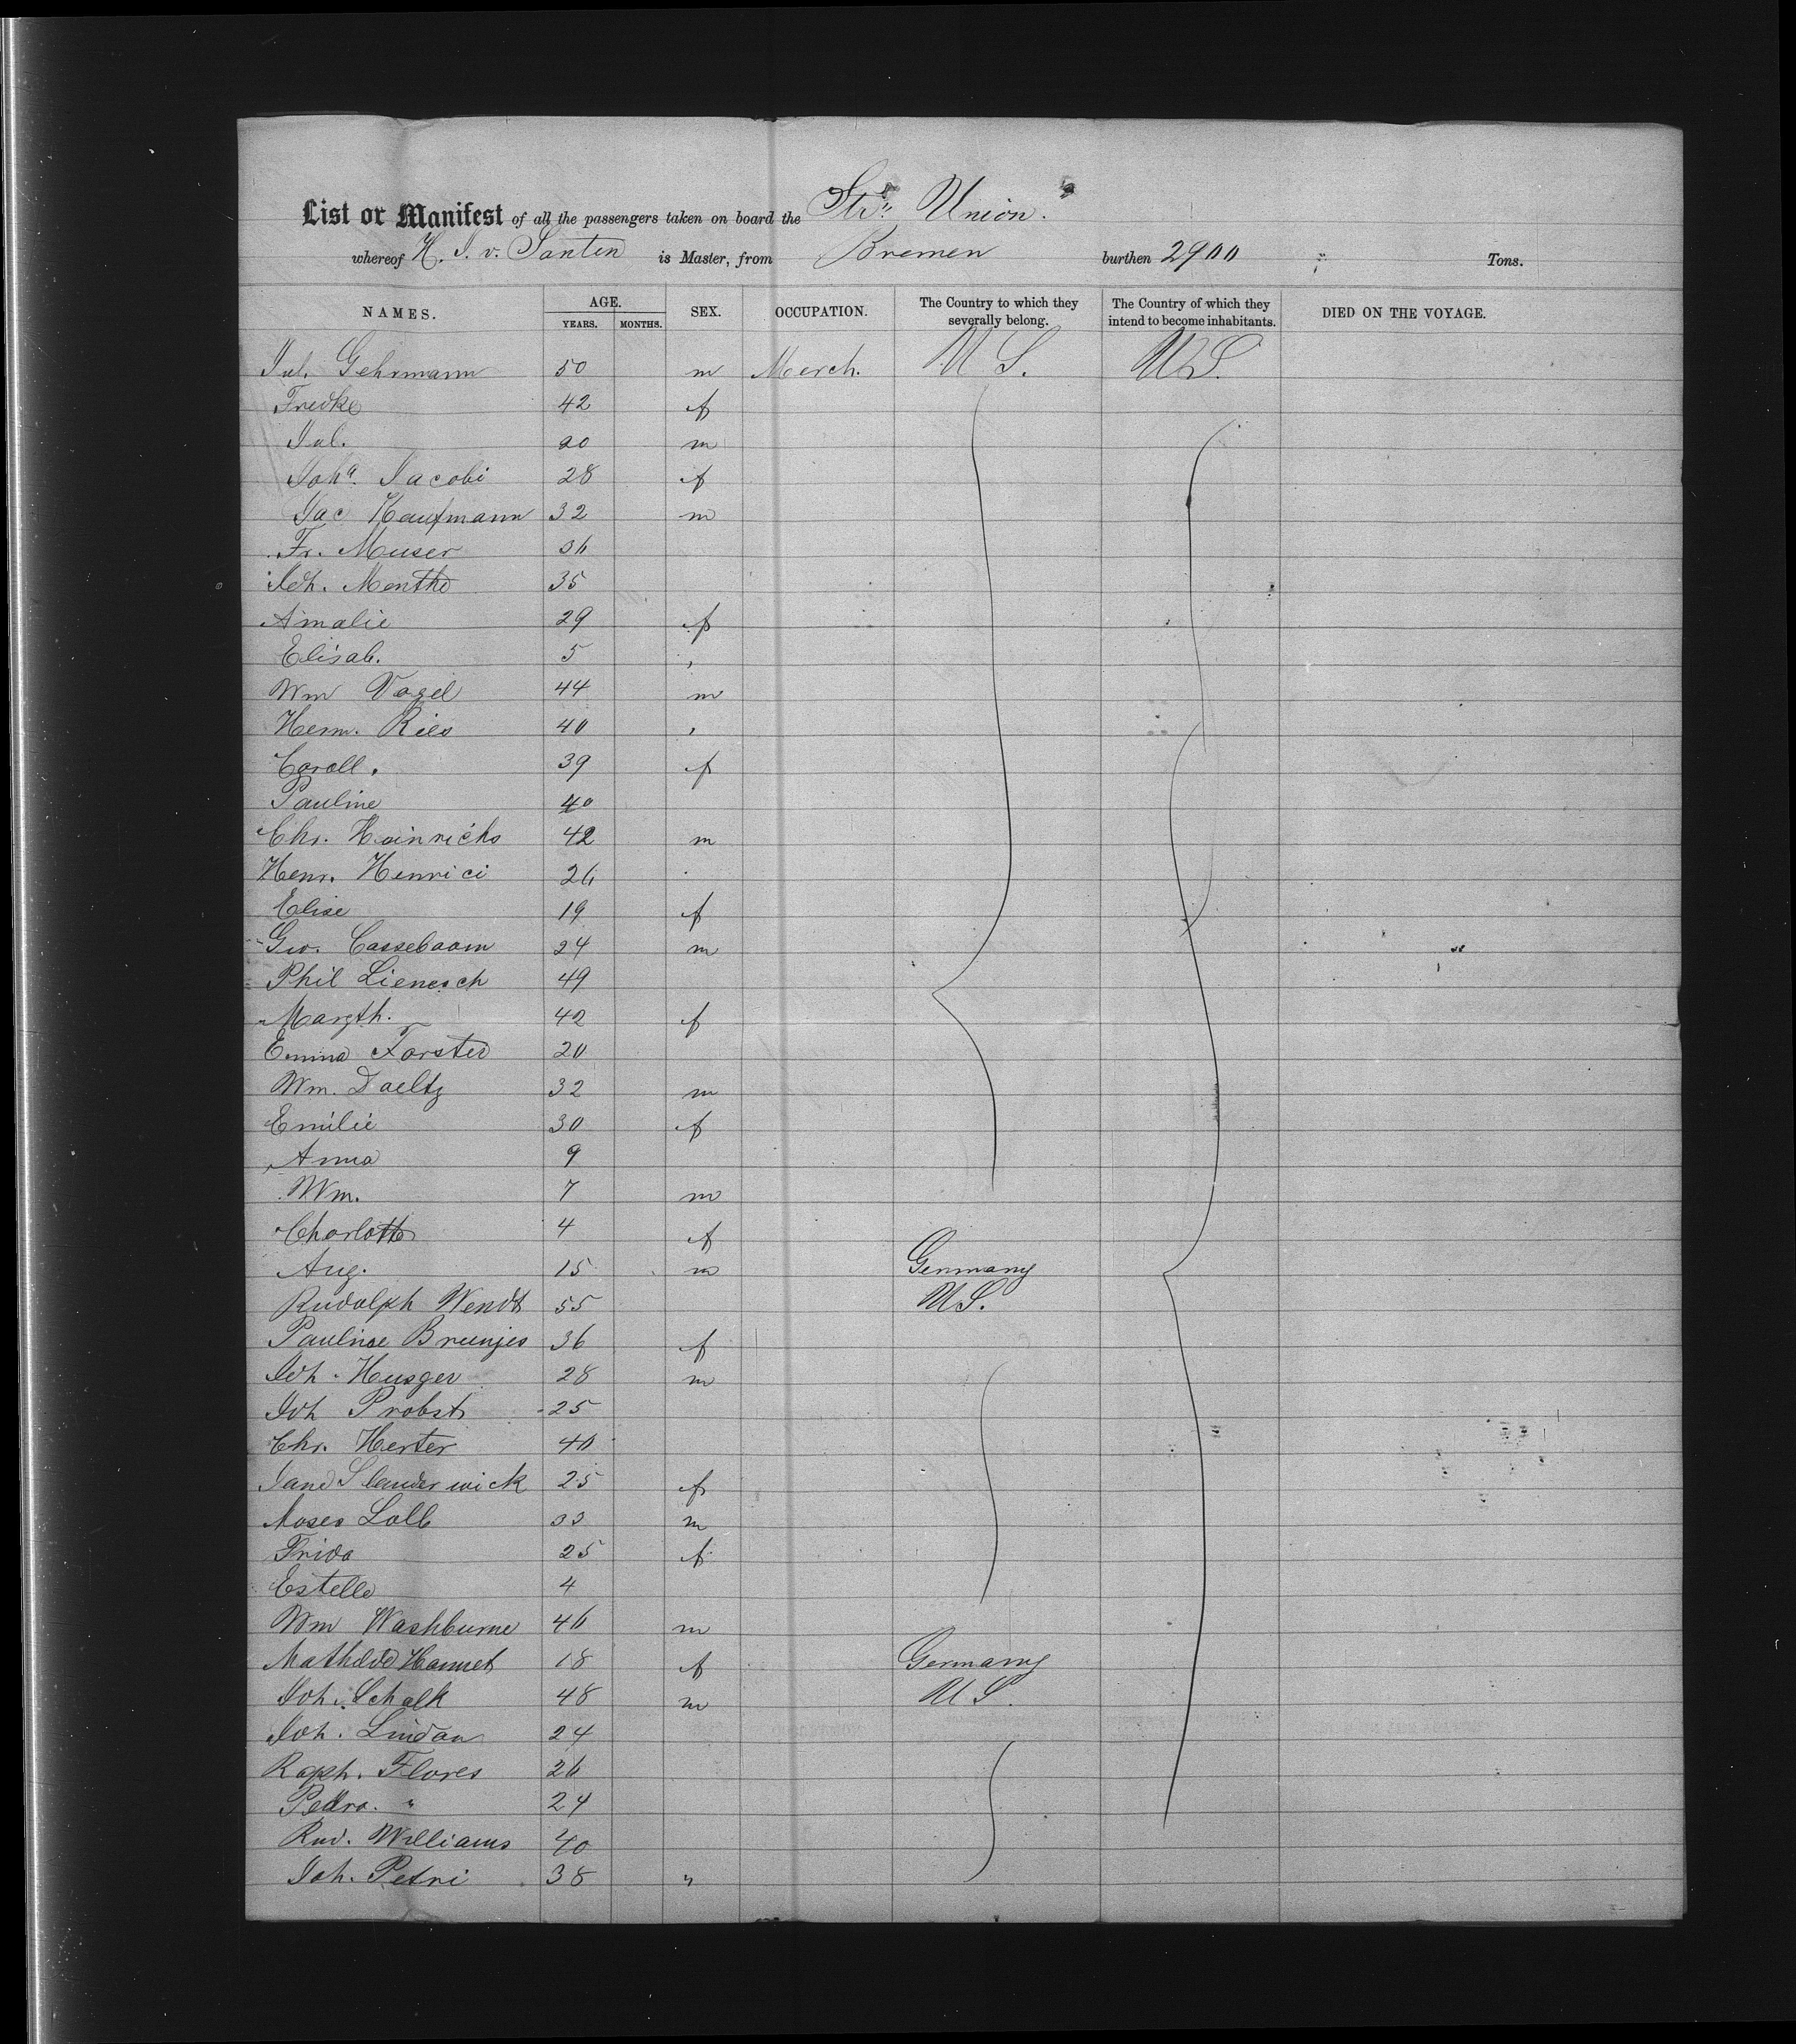 List or Manifest of all the passengers taken on board the Str. "Union."
whereof H. J. v. Santen is Master, from Bremen burthen 2900 Tons.
NAMES. AGE. YEARS. MONTHS. SEX. OCCUPATION. The Country to which they severally belong. The Country of which they intend to become inhabitants. DIED ON THE VOYAGE.
Jul. Gehrmann 50 m Merch. U S. U S.
Fredke 42 f
Jul. 20 m
Joha. Jacobi 28 f
Jac Kaufmann 32 m
Fr. Muser 36
Joh. Menthe 35
Amalie 29 f
Elisab. 5 "
Wm Vogel 44 m
Herm. Ries 40 "
Caroll. 39 f
Pauline 40
Chr. Hainrichs 42 m
Henr. Henrici 26
Elise 19 f
Geo. Cassebaom 24 m
Phil Lienesch 49
Margth. 42 f
Emma Forster 20
Wm. Daeltz 32 m
Emilie 30 f
Anna 9
Wm. 7 m
Charlotte 4 f
Aug. 15 m Germany
Rudolph Wendt 55 U S.
Pauline Bruenjes 36 f
Joh. Husger 28 m
Joh Probst 25
Chr. Herter 40
Jane 25 f
Moses Lolb 33 m
Frida 25 f
Estelle 4
Wm Washburne 46 m
Mathilde Hamnet 18 f Germany
Joh. Schalk 48 m U S.
Joh. Lindau 24
Raph. Flores 26
Pedro. " 24
Rud. Williams 40
Joh. Petri 38 "